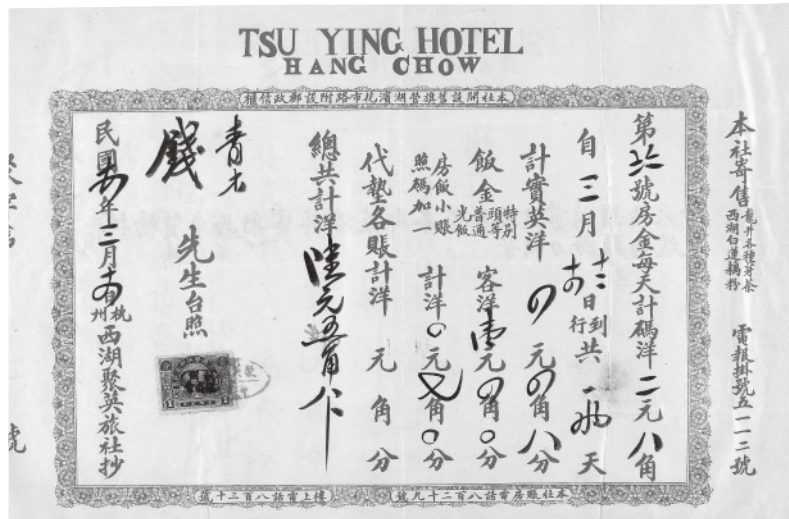 TSU YING HOTEL
HANG CHOW
本社開設舊旗營湖濱花市路附設郵政信櫃
本社寄售龍井各種芽茶西湖白蓮藕粉
電報掛號五一一二號
第號房金每天計碼洋二元八角
自三月日到行共一天
計實英洋元角八分
飯金特別頭等普通光飯客洋元角〇分
房飯小賬照碼加一計洋〇元角〇分
代墊各賬計洋元角分
總共計洋陸元五角八分
錢青士先生台照
民國年三月日杭州西湖聚英旅社抄
本社賬房電話八百二十九號
樓上電話八百三十號